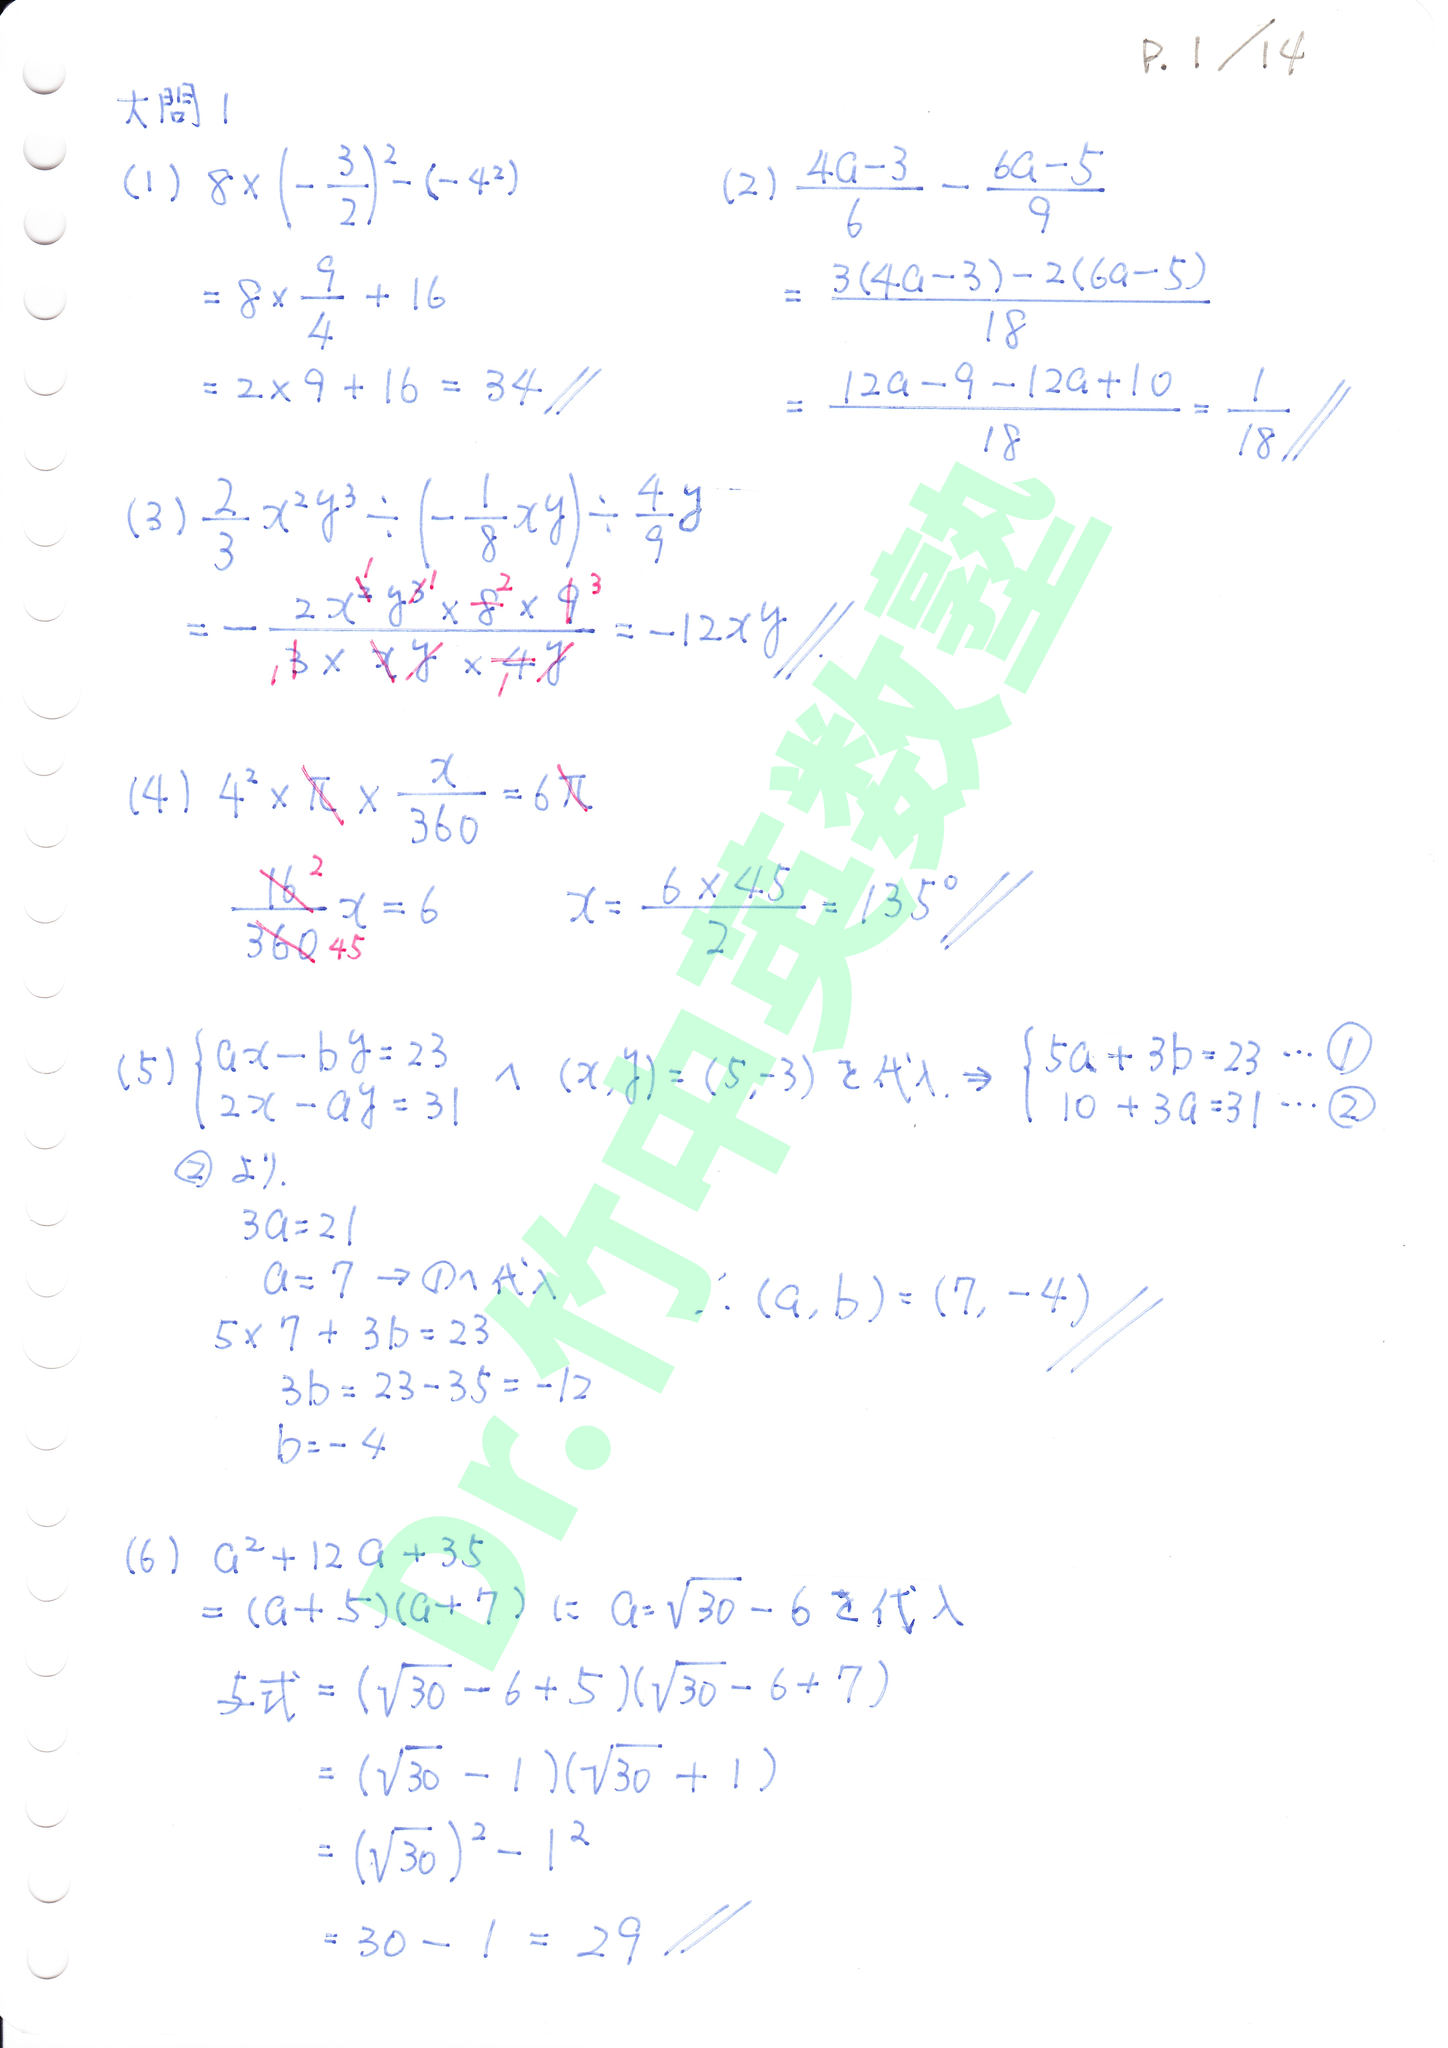 P. 1/14
大問1
(1) 8×(-3/2)²-(-4²)
=8×9/4+16
=2×9+16=34
(2) (4a-3)/6 - (6a-5)/9
=(3(4a-3)-2(6a-5))/18
=(12a-9-12a+10)/18=1/18
(3) 2/3 x²y³÷(-1/8 xy)÷4/9 y
=-(2x²y³×8×9)/(3×xy×4y)=-12xy
1 1 2 3
1 1
(4) 4²×π×x/360=6π
16/360 x=6 x=(6×45)/2=135°
2
45
(5) {ax-by=23
2x-ay=31 へ (x,y)=(5,-3)を代入. ⇒ {5a+3b=23…①
10+3a=31…②
②より.
3a=21
a=7→①へ代入
5×7+3b=23
∴(a,b)=(7,-4)
3b=23-35=-12
b=-4
(6) a²+12a+35
=(a+5)(a+7)に a=√30-6を代入
与式=(√30-6+5)(√30-6+7)
=(√30-1)(√30+1)
=(√30)²-1²
=30-1=29
Dr.竹中英数塾